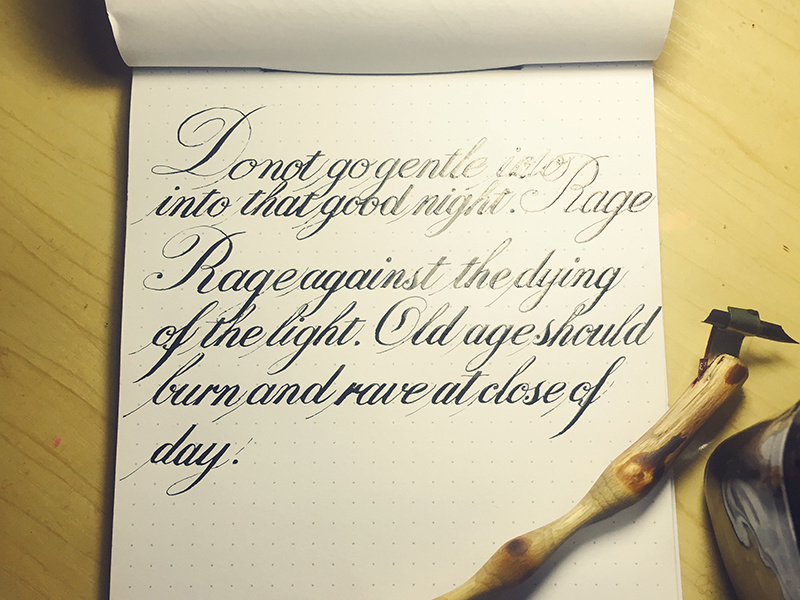 Do not go gentle into
into that good night. Rage
Rage against the dying
of the light. Old age should
burn and rave at close of
day.